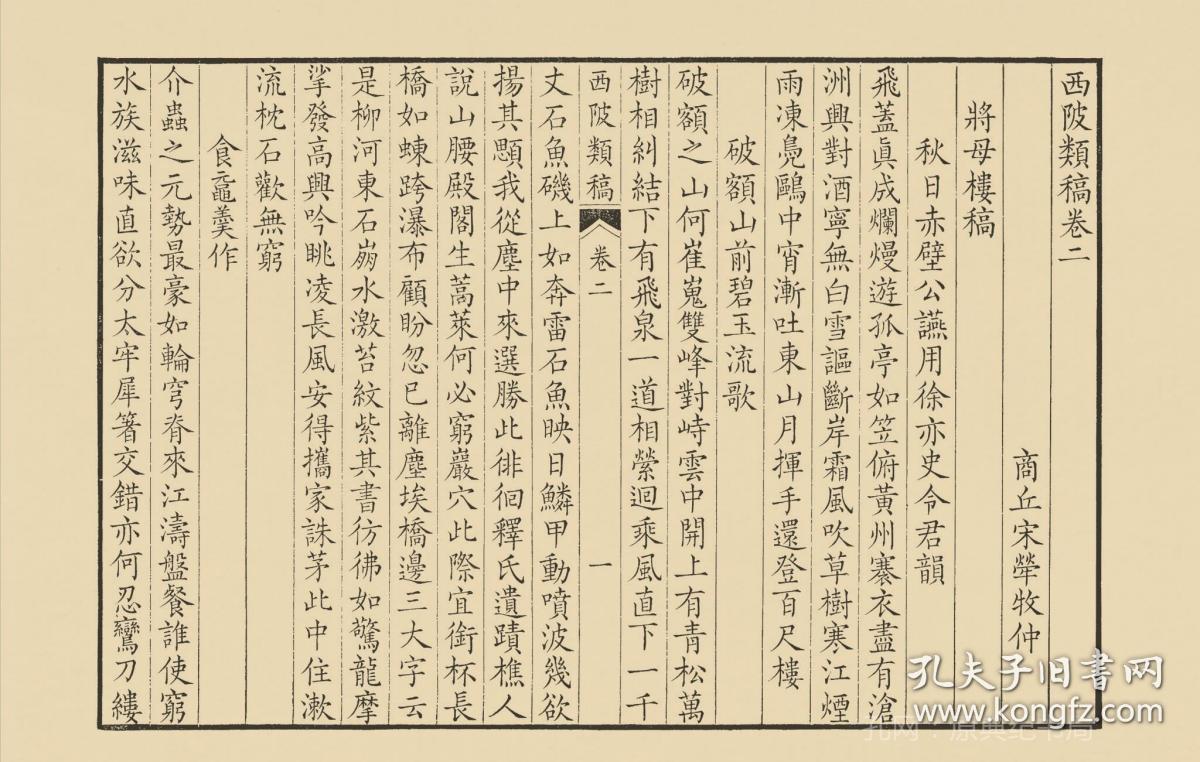 西陂類稿卷二
商丘宋犖牧仲
將母樓稿
秋日赤壁公讌用徐亦史令君韻
飛蓋眞成爛熳遊孤亭如笠俯黃州褰衣盡有滄
洲興對酒寧無白雪謳斷岸霜風吹草樹寒江煙
雨凍鳧鷗中宵漸吐東山月揮手還登百尺樓
破額山前碧玉流歌
破額之山何崔嵬雙峰對峙雲中開上有青松萬
樹相糾結下有飛泉一道相縈迴乘風直下一千
西陂類稿
卷二
一
丈石魚磯上如奔雷石魚映日鱗甲動噴波幾欲
揚其顋我從塵中來選勝此徘徊釋氏遺蹟樵人
說山腰殿閣生蒿萊何必窮巖穴此際宜銜杯長
橋如蝀跨瀑布顧盼忽已離塵埃橋邊三大字云
是柳河東石崩水激苔紋紫其書彷彿如驚龍摩
挲發高興吟眺凌長風安得攜家誅茅此中住漱
流枕石歡無窮
食黿羹作
介蟲之元勢最豪如輪穹脊來江濤盤餐誰使窮
水族滋味直欲分太牢犀箸交錯亦何忍鸞刀縷
孔夫子旧书网
www.kongfz.com
孔网：原典纪书局